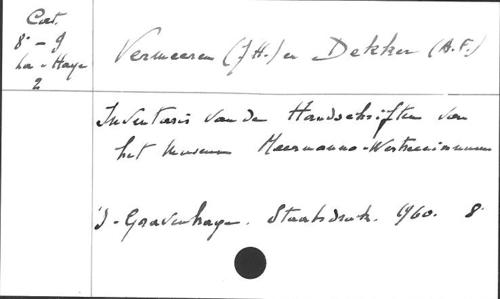 Cat.
8° - 9
La-Haye
2
Vermeeren (J H.) en Dekker (A.F.)
Inventaris van de Handschriften van
het Museum Meermanno-Westreenianum
's-Gravenhage. Staatsdruk. 1960. 8°